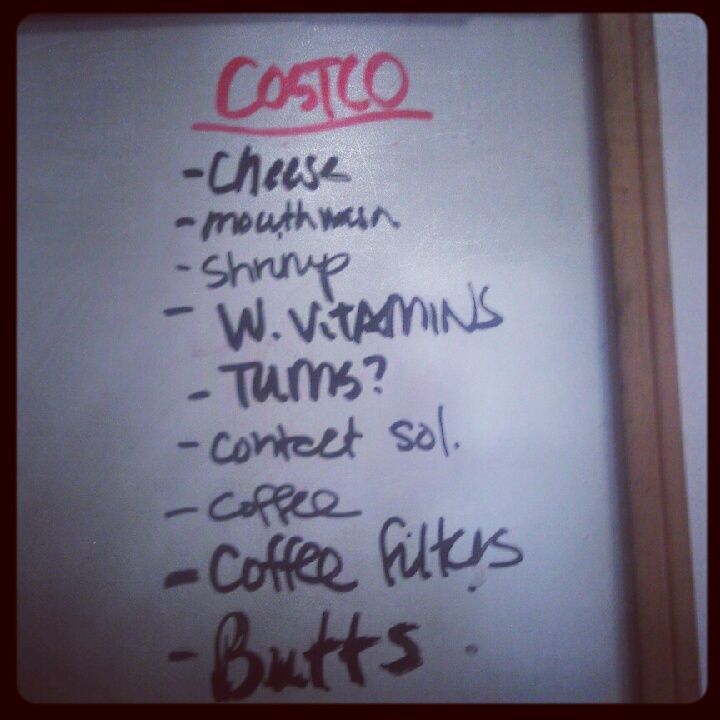 COSTCO
- Cheese
- mouthwash
- Shrimp
- W. VITAMINS
- TUMS?
- contact sol.
- coffee
- Coffee Filters
- Butts